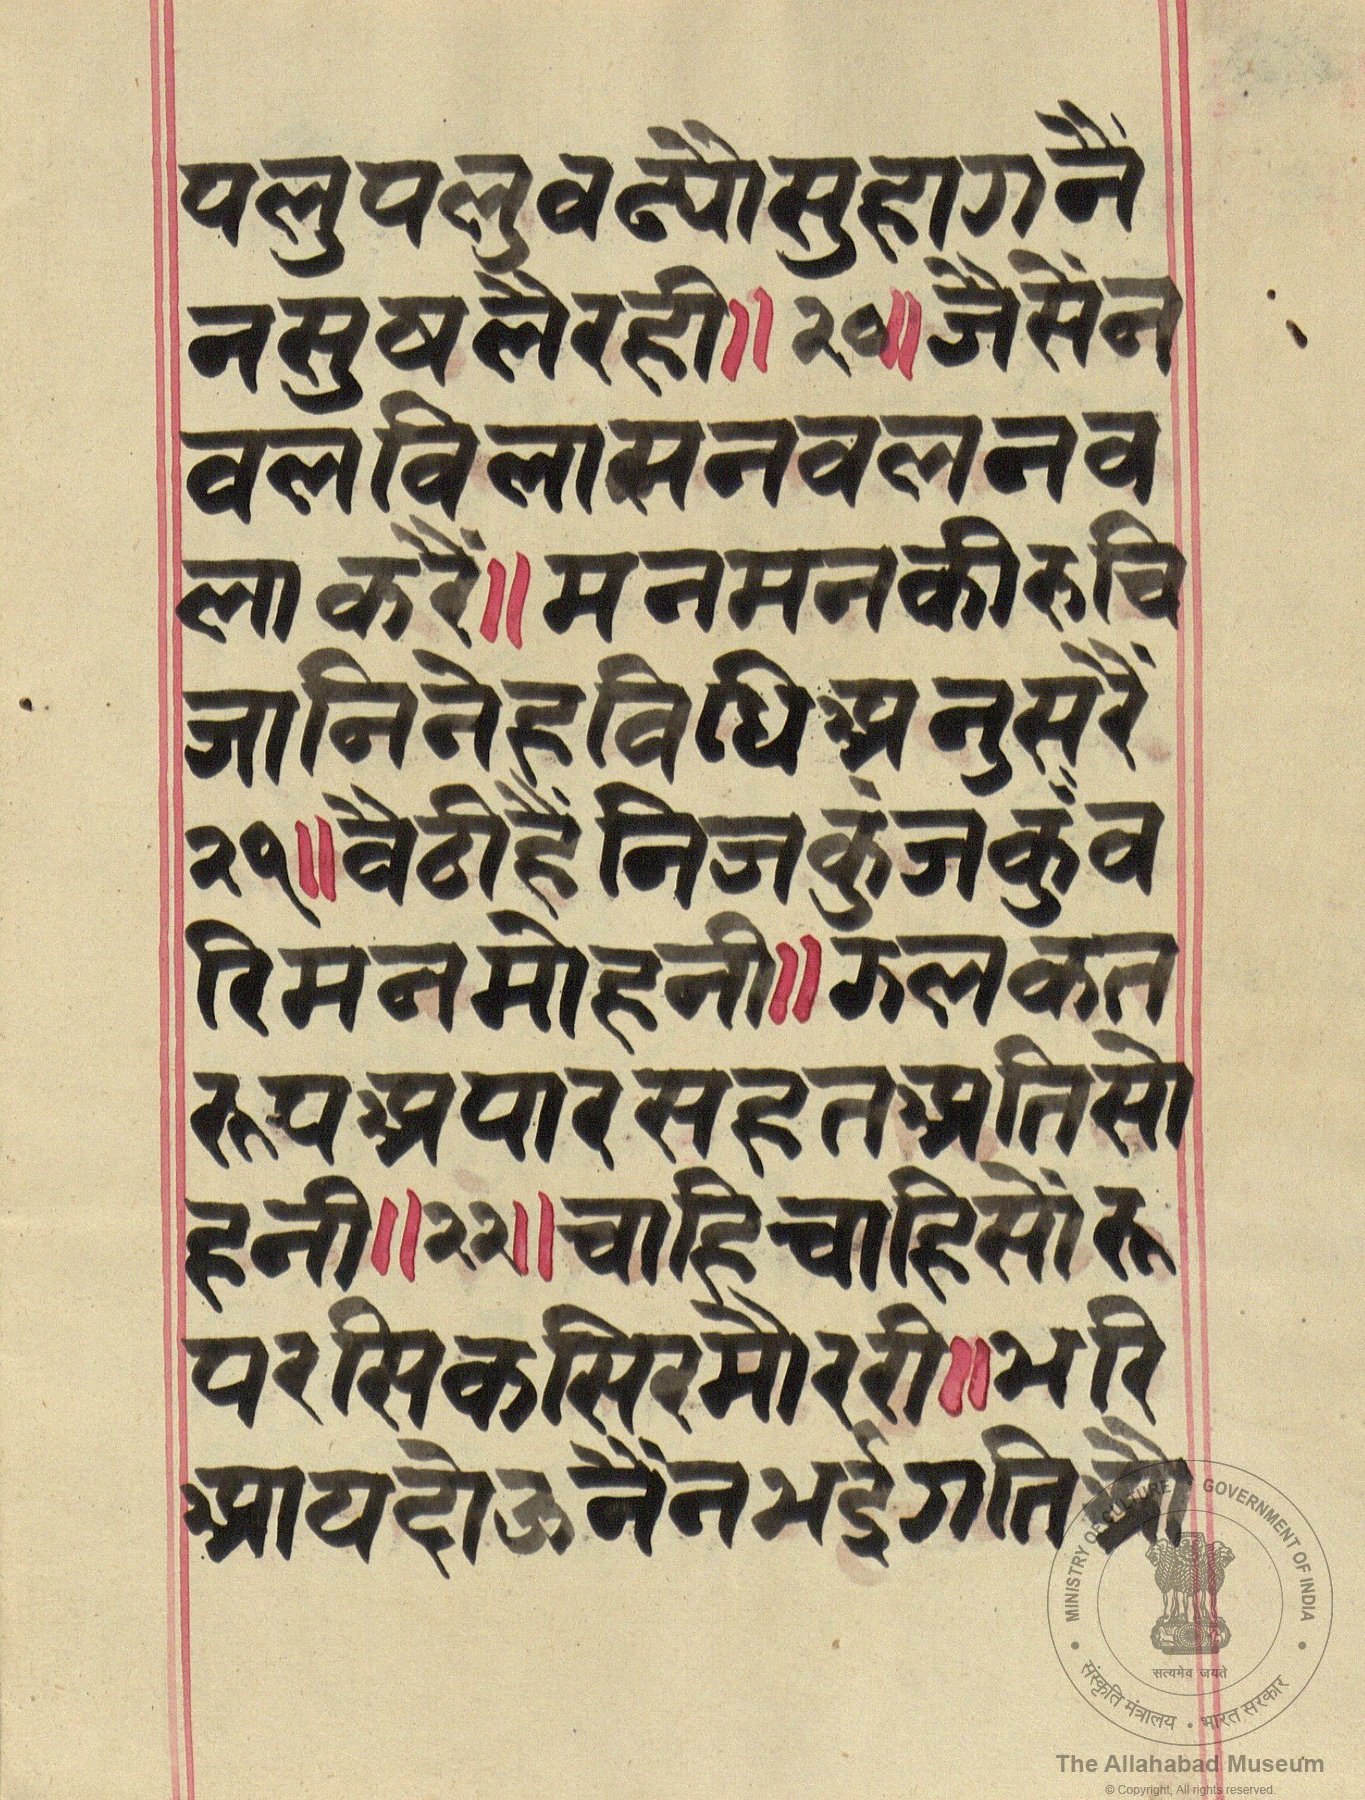 पलुपलुवढ्यौसुहागनैं
नसुषलैरही॥२०॥जैसेंन
वलविलासनवलनव
लाकरैं॥मनमनकीरुचि
जानिनेहविधिअनुसरैं
२१॥वैठीहैंनिजकुंजकुंव
रिमनमोहनी॥झलकत
रूपअपारसहतअतिसो
हनी॥२२॥चाहिचाहिसोंरू
परसिकसिरमौररी॥भरि
आयदोऊनैंनभईगतिऔ
MINISTRY OF CULTURE GOVERNMENT OF INDIA
सत्यमेव जयते
संस्कृति मंत्रालय • भारत सरकार
The Allahabad Museum
© Copyright, All rights reserved.